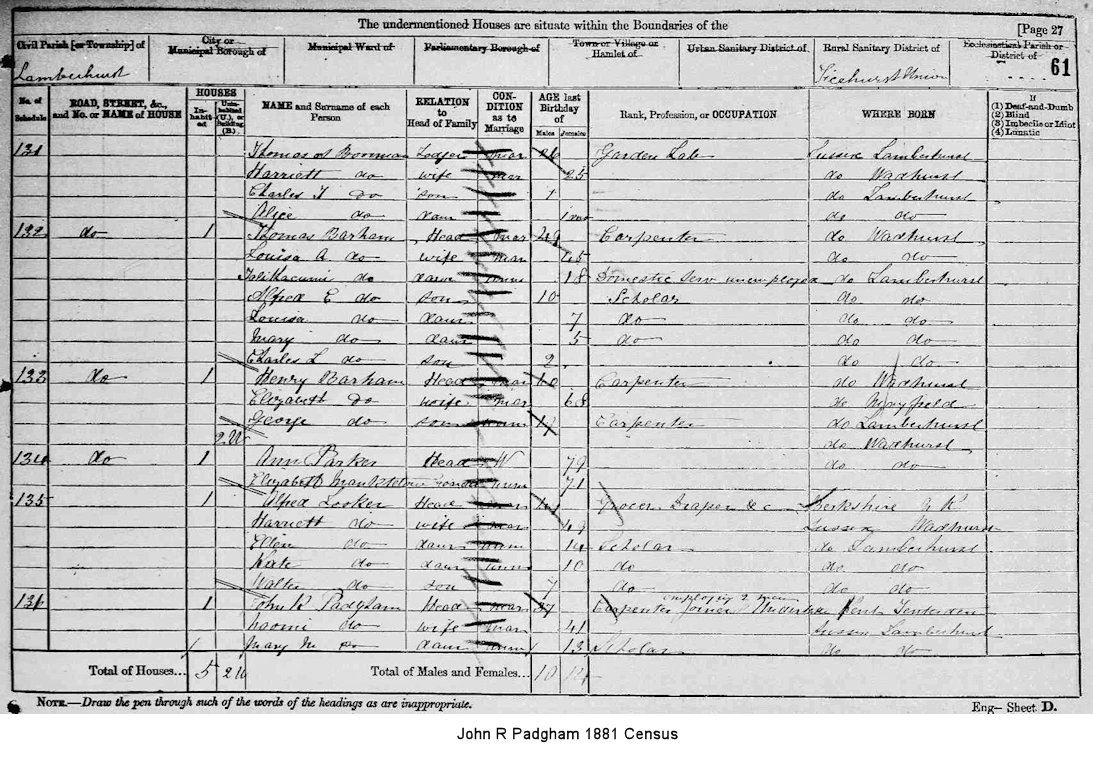 The undermentioned Houses are situate within the Boundaries of the
[Page 27
Civil Parish [or Township] of City or Municipal Borough of Municipal Ward of Parliamentary Borough of Town or Village or Hamlet of Urban Sanitary District of Rural Sanitary District of Ecclesiastical Parish or District of
Lamberhurst Ticehurst Union 61
No. of Schedule ROAD, STREET, &c., and No. or NAME of HOUSE HOUSES Inhabited Uninhabited (U.), or Building (B.) NAME and Surname of each Person RELATION to Head of Family CONDITION as to Marriage AGE last Birthday of Males Females Rank, Profession, or OCCUPATION WHERE BORN If (1) Deaf-and-Dumb (2) Blind (3) Imbecile or Idiot (4) Lunatic
131 Thomas Bowman Lodger mar 26 Garden Lab Sussex Lamberhurst
Harriett do wife mar 25 do Wadhurst
Charles T do son 1 do Lamberhurst
Alice do daur 1 mo do do
132 do 1 Thomas Barham Head mar 49 Carpenter do Wadhurst
Louisa A. do wife mar 45 do do
do daur unm 18 Domestic Serv unemployed do Lamberhurst
Alfred E do son 10 Scholar do do
Louisa do daur 7 do do do
Mary do daur 5 do do do
Charles L do son 2 do do
133 do 1 Henry Barham Head mar 60 Carpenter do Wadhurst
Elizabeth do wife mar 68 do Mayfield
George do son unm 19 Carpenter do Lamberhurst
2 U do Wadhurst
134 do 1 Ann Parker Head W 79 do do
Elizabeth unm 71
135 1 Alfred Looker Head mar Grocer Draper &c Berkshire N K
Harriett do wife mar 49 Sussex Wadhurst
Ellen do daur unm 14 Scholar do Lamberhurst
Kate do daur unm 10 do do do
Walter do son 7 do do do
employing 2 men
136 1 John R Padgham Head mar 37 Carpenter Joiner Undertaker Kent Tenterden
Naomi do wife mar 41 Sussex Lamberhurst
Mary M do daur unm 13 Scholar do do
Total of Houses... 5 2 U Total of Males and Females... 10 14
NOTE.—Draw the pen through such of the words of the headings as are inappropriate.
Eng– Sheet D.
John R Padgham 1881 Census